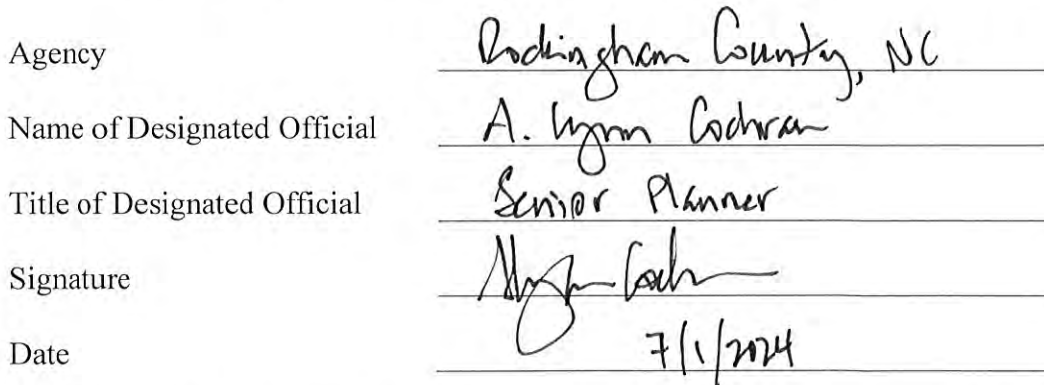 Agency Rockingham County, NC
Name of Designated Official A. Lynn Cochran
Title of Designated Official Senior Planner
Signature
Date 7/1/2024